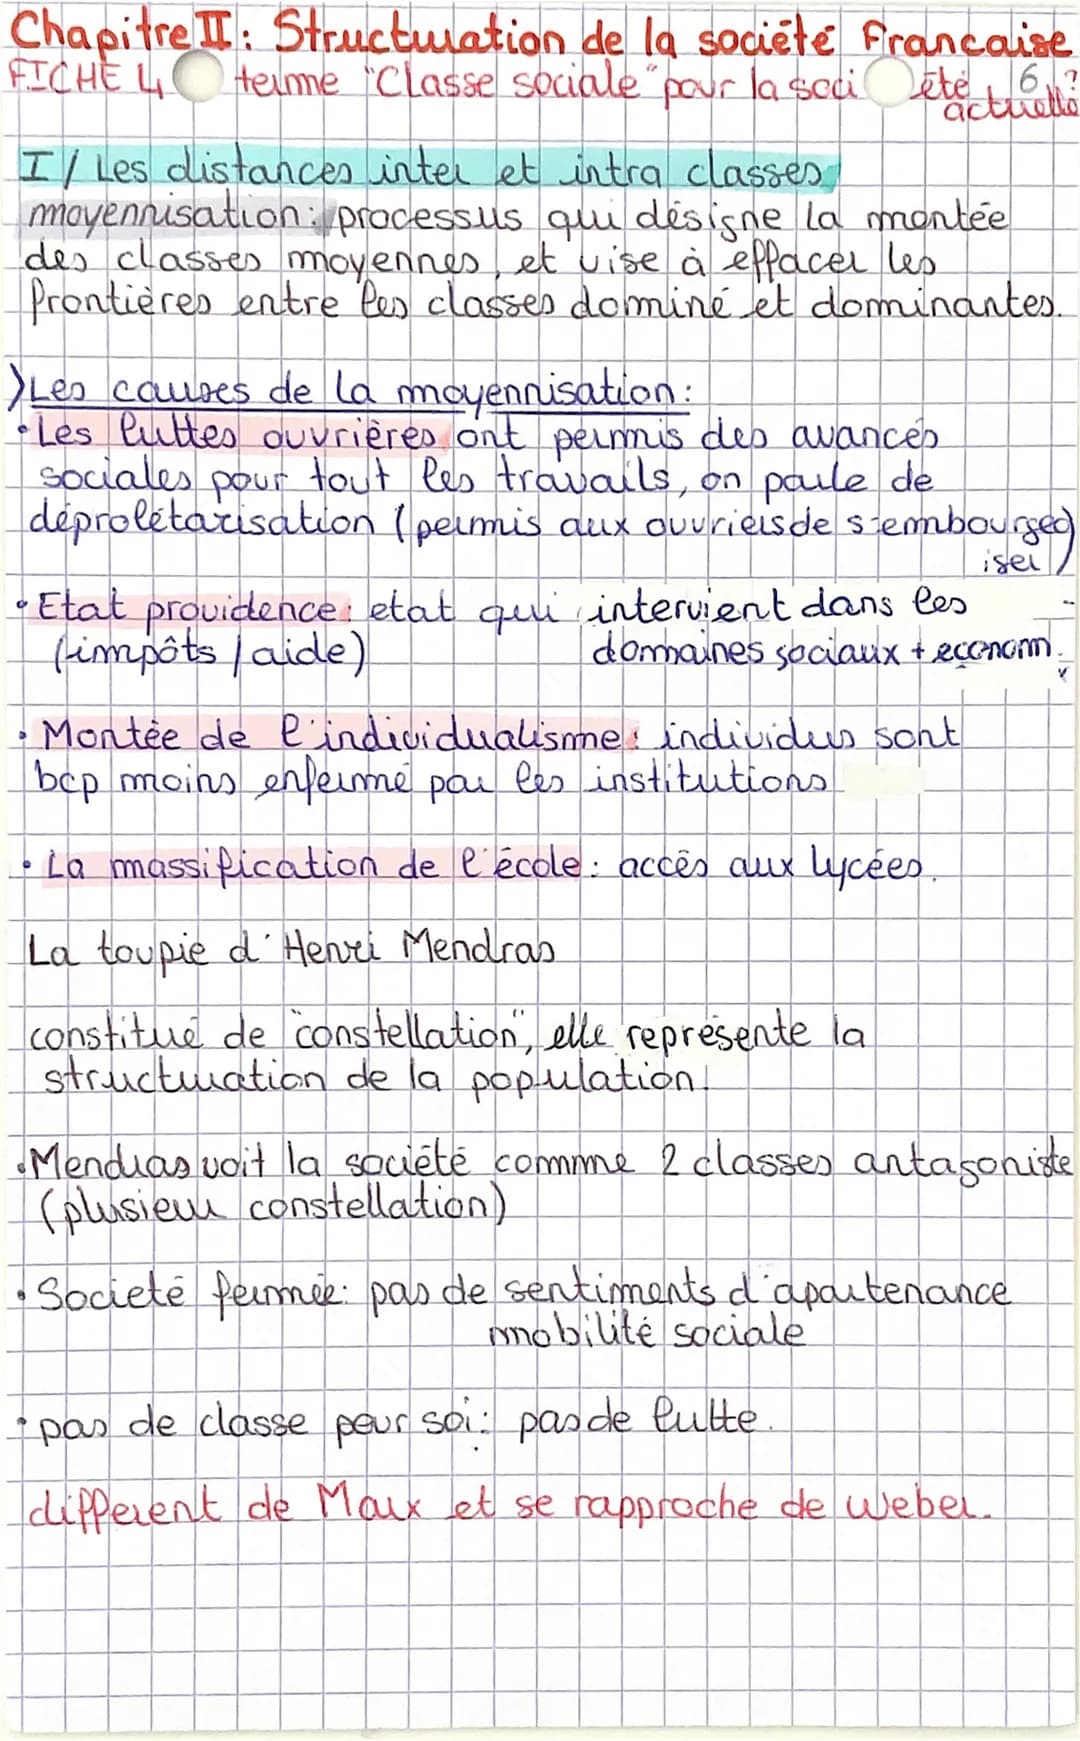 Chapitre II : Structuration de la société Française
FICHE 4 terme "Classe sociale" pour la société actuelle ?
6
I / Les distances inter et intra classes
moyennisation : processus qui désigne la montée
des classes moyennes, et vise à effacer les
frontières entre les classes dominé et dominantes.
Les causes de la moyennisation :
• Les luttes ouvrières ont permis des avancés
sociales pour tout les travails, on parle de
déprolétarisation (permis aux ouvriers de s'embourgeoiser)
• Etat providence : etat qui intervient dans les
(impôts / aide) domaines sociaux + econom.
• Montée de l'individualisme : individus sont
bcp moins enfermé par les institutions
• La massification de l'école : accès aux lycées.
La toupie d'Henri Mendras
constitué de "constellation", elle représente la
structuration de la population.
• Mendras voit la société commme 2 classes antagoniste
(plusieur constellation)
• Societé fermée : pas de sentiments d'apartenance
mobilité sociale
• pas de classe pour soi : pas de lutte.
différent de Marx et se rapproche de weber.